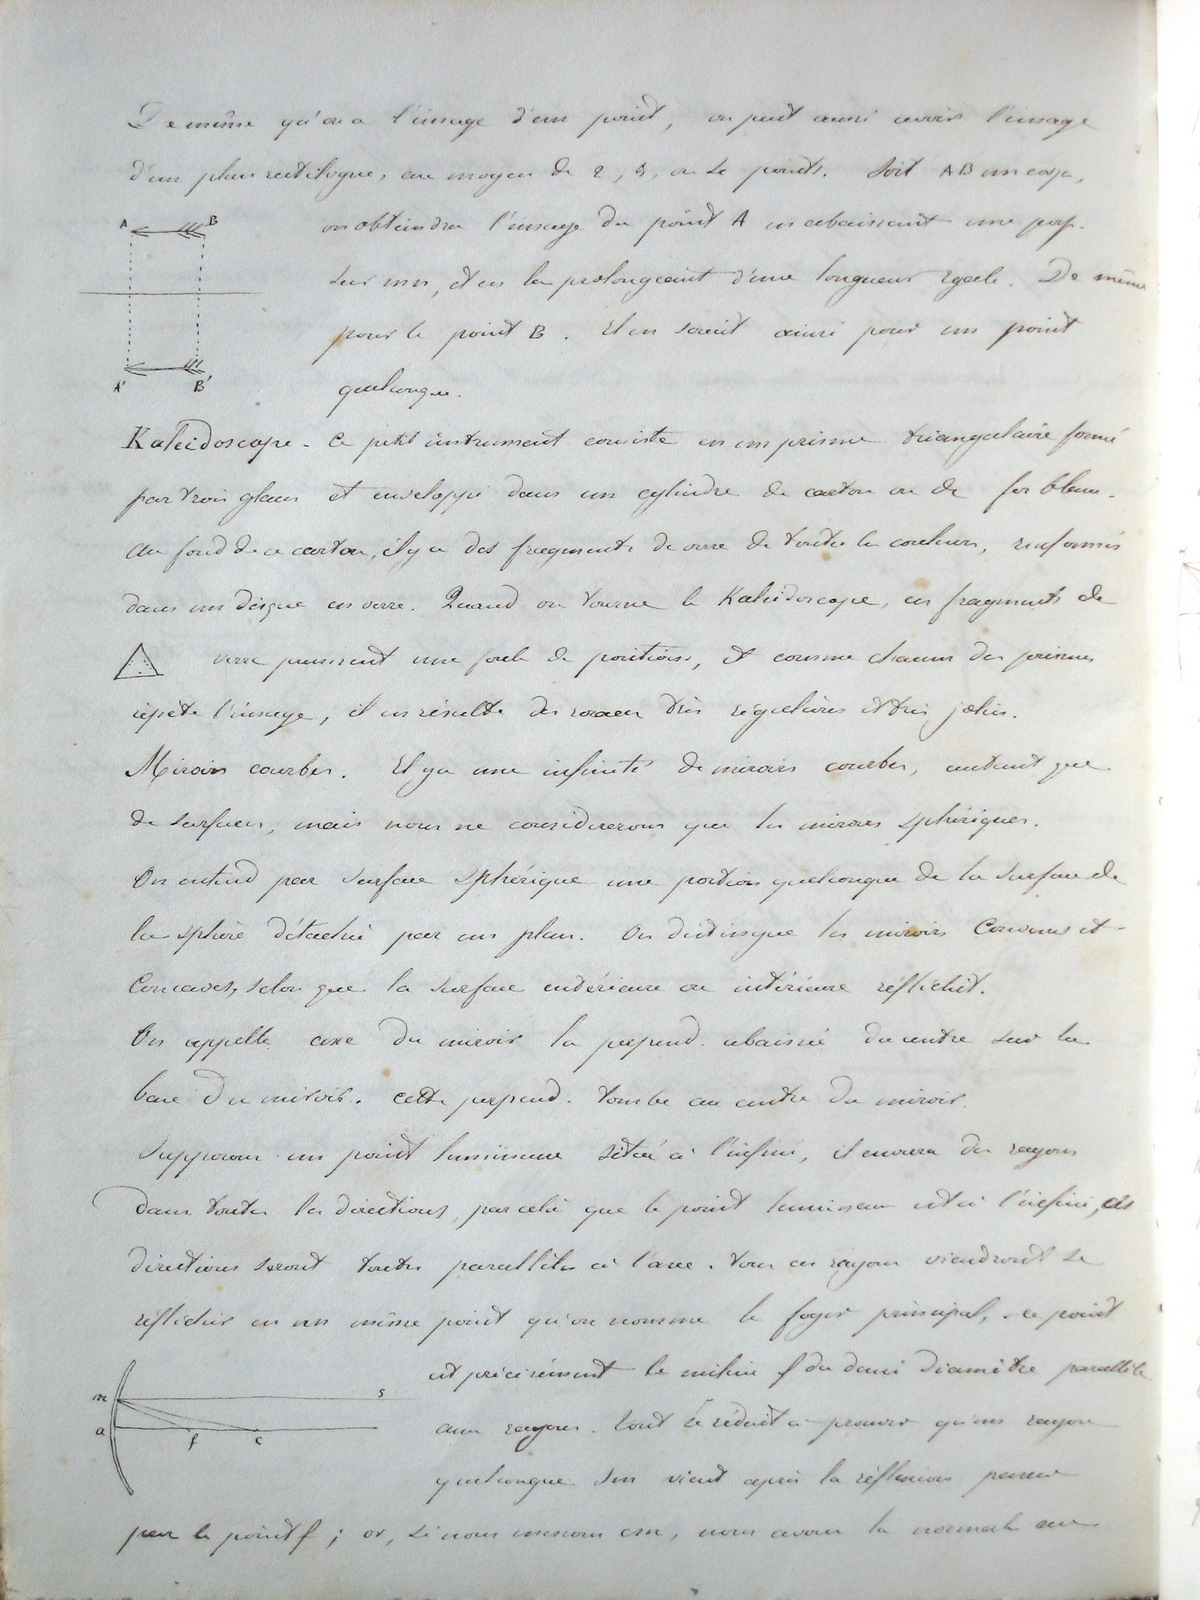 De même qu'on a l'image d'un point, on peut aussi avoir l'image
d'un plan rectiligne, au moyen de 2, 3, ou de points. Soit AB un corps,
on obtiendra l'image du point A en abaissant une perp.
A B
sur mn, et en la prolongeant d'une longueur égale. De même
pour le point B. Il en serait ainsi pour un point
A' B'
quelconque.
Kaleidoscope - Ce petit instrument consiste en un prisme triangulaire formé
par trois glaces et enveloppé dans un cylindre de carton ou de fer blanc.
Au fond de ce carton, il y a des fragments de verre de toutes les couleurs, renfermés
dans un disque en verre. Quand on tourne le Kaleidoscope, ces fragments de
verre prennent une foule de positions, et comme chacun des prismes
répète l'image, il en résulte des rosaces très régulières et très jolies.
Miroirs courbes. Il y a une infinité de miroirs courbes, autant que
de surfaces, mais nous ne considérerons que les miroirs sphériques.
On entend par surface sphérique une portion quelconque de la surface de
la sphère détachée par un plan. On distingue les miroirs Convexes et
Concaves, selon que la surface extérieure ou intérieure réfléchit.
On appelle axe du miroir la perpend. abaissée du centre sur la
base du miroir. Cette perpend. tombe au centre du miroir.
Supposons un point lumineux situé à l'infini, il enverra des rayons
dans toutes les directions, par cela que le point lumineux est à l'infini, ces
directions seront toutes parallèles à l'axe. Tous ces rayons viendront se
réfléchir en un même point qu'on nomme le foyer principal, ce point
est précisément le milieu f du demi diamètre parallèle
m s
aux rayons. Tout se réduit à prouver qu'un rayon
a f c
quelconque sm vient après la réflexion passer
par le point f ; or, si nous menons cm, nous avons la normale au